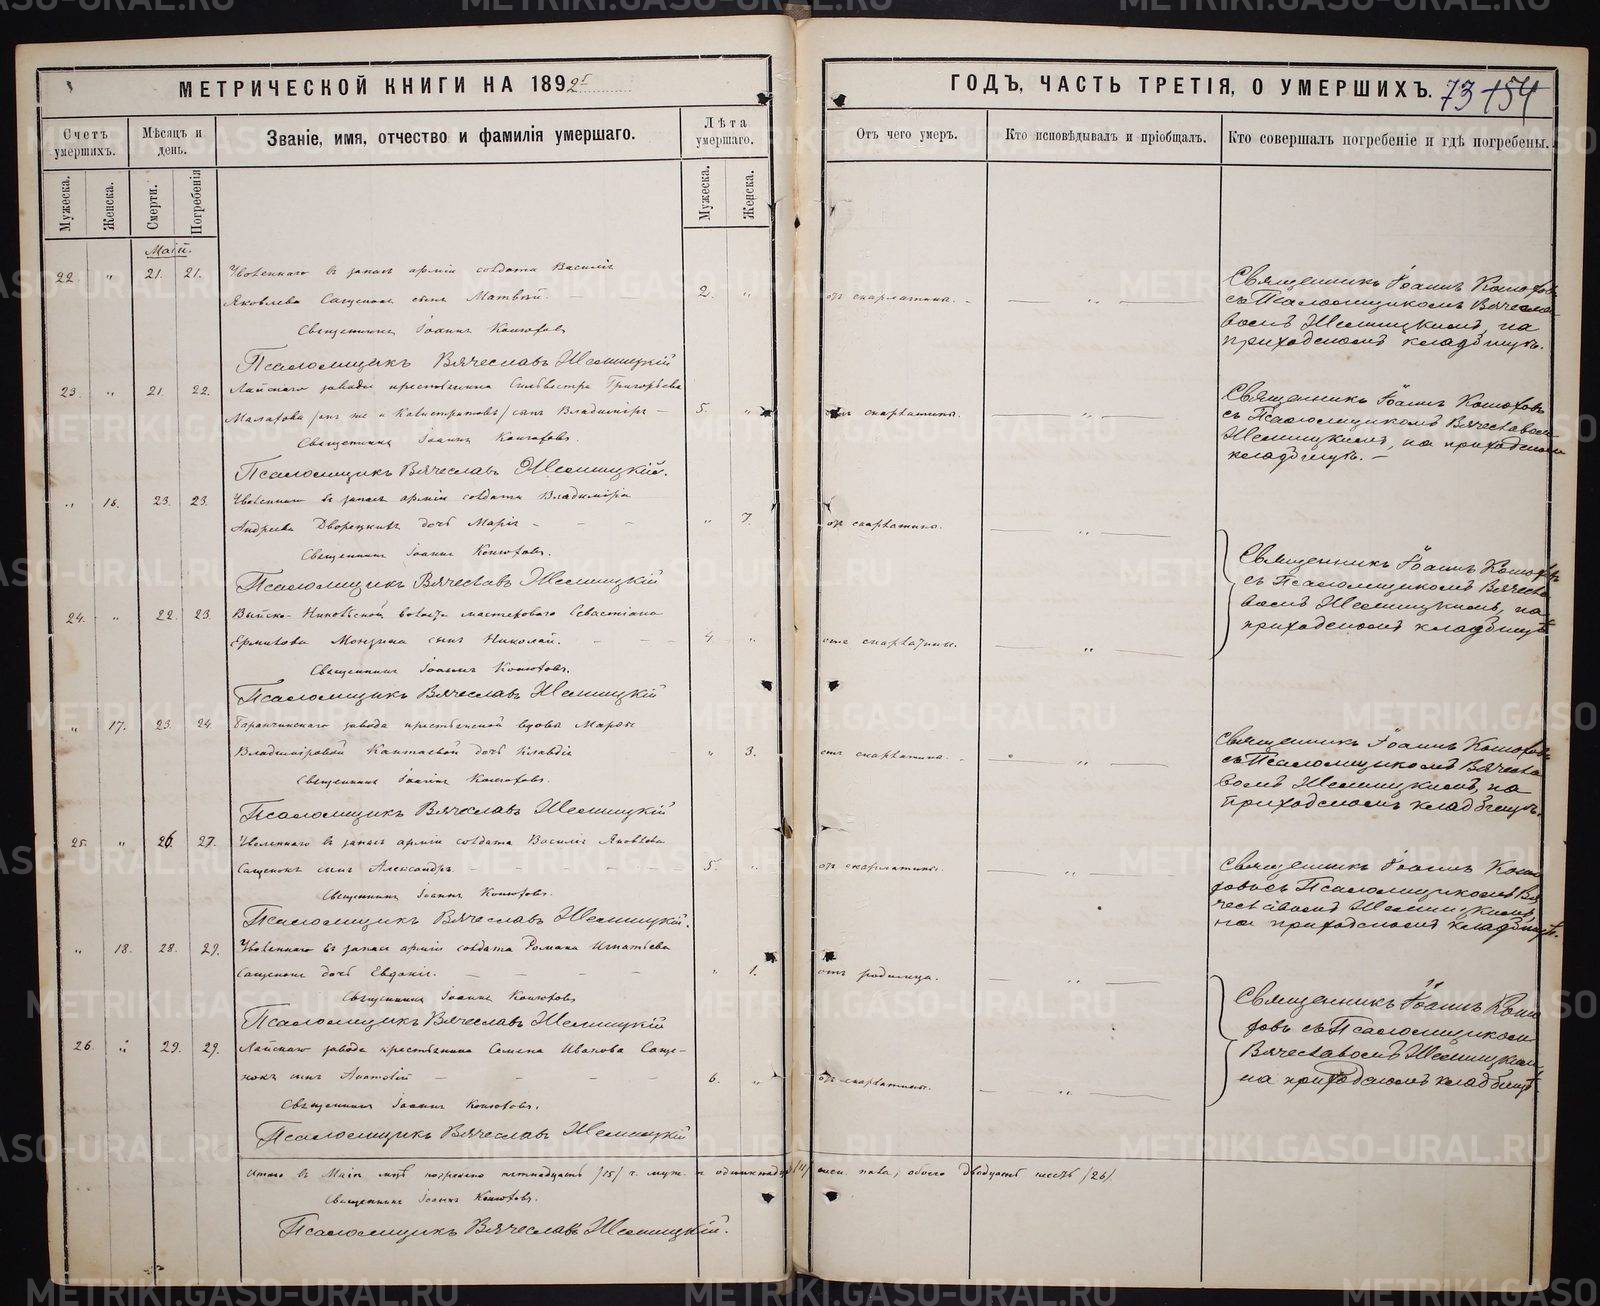 МЕТРИЧЕСКОЙ КНИГИ НА 1892
ГОДЪ, ЧАСТЬ ТРЕТІЯ, О УМЕРШИХЪ.
73 154
Счетъ умершихъ.
Мѣсяцъ и день.
Званіе, имя, отчество и фамилія умершаго.
Лѣта умершаго.
Отъ чего умеръ.
Кто исповѣдывалъ и пріобщалъ.
Кто совершалъ погребеніе и гдѣ погребены.
Мужеска.
Женска.
Смерти.
Погребенія
Мужеска.
Женска.
Маій.
22. " 21. 21. Уволеннаго въ запасъ арміи солдата Василія
Яковлева Сащенокъ сынъ Матвѣй. 2. " отъ скарлатины. "
Священникъ Іоаннъ Конюховъ
Псаломщикъ Вячеславъ Шемицкій
Священникъ Іоаннъ Конюховъ
съ Псаломщикомъ Вячесла-
вомъ Шемицкимъ, на
приходскомъ кладбищѣ.
23. " 21 22. Лайскаго завода крестьянина Сильвестра Григорьева
сынъ Владиміръ 5. " отъ скарлатины. "
Священникъ Іоаннъ Конюховъ.
Псаломщикъ Вячеславъ Шемицкій.
Священникъ Іоаннъ Конюховъ
съ Псаломщикомъ Вячеславом
Шемицкимъ, на приходскомъ
кладбищѣ.
" 16. 23. 23. Уволеннаго въ запасъ арміи солдата Владиміра
Андреева Дворецкихъ дочь Марія " 7. отъ скарлатины. "
Священникъ Іоаннъ Конюховъ.
Псаломщикъ Вячеславъ Шемицкій
24. " 22. 23. Выйско-Никольской волости мастероваго Севастіана
Ермилова сынъ Николай. 4 " отъ скарлатины. "
Священникъ Іоаннъ Конюховъ.
Псаломщикъ Вячеславъ Шемицкій
Священникъ Іоаннъ Конюховъ
съ Псаломщикомъ Вячесла
вомъ Шемицкимъ, на
приходскомъ кладбищѣ
" 17. 23. 24 Баранчинскаго завода крестьянской вдовы Марѳы
Владиміровой дочь Клавдія " 3. отъ скарлатины. "
Священникъ Іоаннъ Конюховъ.
Псаломщикъ Вячеславъ Шемицкій
Священникъ Іоаннъ Конюховъ
съ Псаломщикомъ Вячесла
вомъ Шемицкимъ, на
приходскомъ кладбищѣ.
25. " 26. 27. Уволеннаго въ запасъ арміи солдата Василія Яковлева
Сащенокъ сынъ Александръ. 5. " отъ скарлатины. "
Священникъ Іоаннъ Конюховъ.
Псаломщикъ Вячеславъ Шемицкій.
Священникъ Іоаннъ Коню
ховъ съ Псаломщикомъ Вя
чеславомъ Шемицкимъ,
на приходскомъ кладбищѣ.
" 18. 28. 29. Уволеннаго въ запасъ арміи солдата Романа Игнатьева
Сащенокъ дочь Евдокія. " 1. отъ родимца. "
Священникъ Іоаннъ Конюховъ
Псаломщикъ Вячеславъ Шемицкій
26. " 29. 29. Лайскаго завода крестьянина Семена Иванова Саще-
нокъ сынъ Анатолій 6. " отъ скарлатины. "
Священникъ Іоаннъ Конюховъ.
Псаломщикъ Вячеславъ Шемицкій
Священникъ Іоаннъ Коню
ховъ съ Псаломщикомъ
Вячеславомъ Шемицким
на приходскомъ кладбищѣ.
Итого въ Маіи мцѣ погребено пятнадцать /15/ ч. муж. и одиннадцать /11/ жен. пола; обоего двадцать шесть /26/
Священникъ Іоаннъ Конюховъ.
Псаломщикъ Вячеславъ Шемицкій.
METRIKI.GASO-URAL.RU